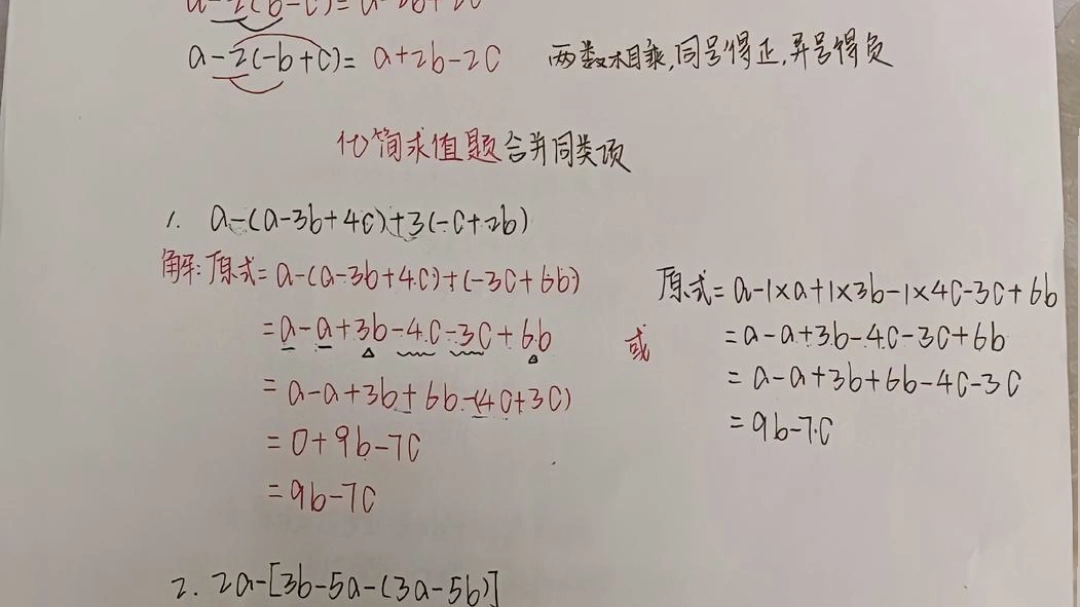 a-2(b-c)=a-2b+2c
a-2(-b+c)=a+2b-2c 两数相乘,同号得正,异号得负
化简求值题合并同类项
1. a-(a-3b+4c)+3(-c+2b)
解:原式=a-(a-3b+4c)+(-3c+6b)
=a-a+3b-4c-3c+6b
=a-a+3b+6b-(4c+3c)
=0+9b-7c
=9b-7c
或
原式=a-1×a+1×3b-1×4c-3c+6b
=a-a+3b-4c-3c+6b
=a-a+3b+6b-4c-3c
=9b-7c
2. 2a-[3b-5a-(3a-5b)]